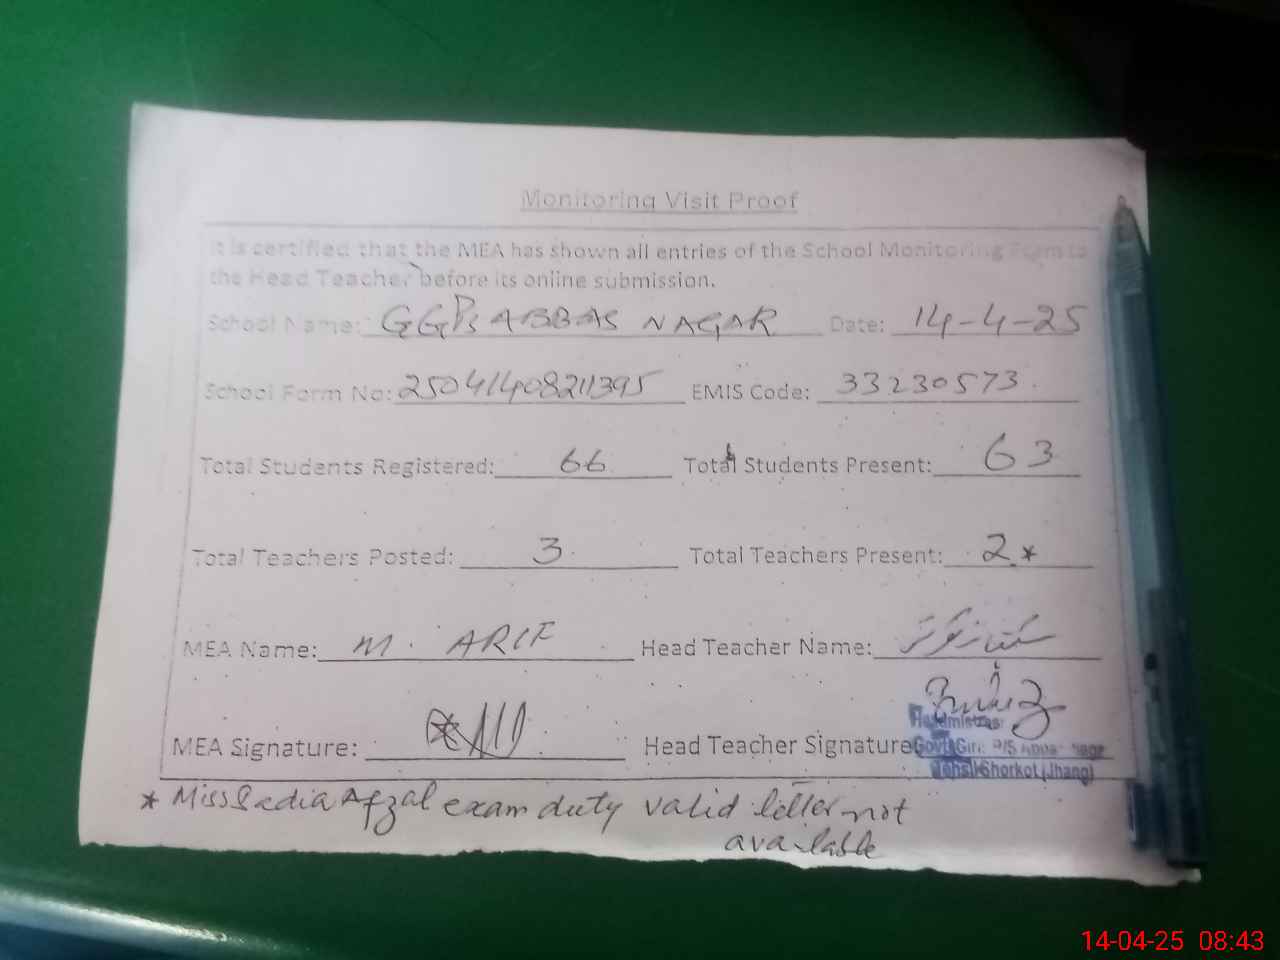 Monitoring Visit Proof
It is certified that the MEA has shown all entries of the School Monitoring Form to
the Head Teacher before its online submission.
School Name: GGPS ABBAS NAGAR Date: 14-4-25
School Form No: 25041408211395 EMIS Code: 33230573
Total Students Registered: 66 Total Students Present: 63
Total Teachers Posted: 3 Total Teachers Present: 2*
MEA Name: M. ARIF Head Teacher Name:
MEA Signature: Head Teacher Signature
Headmistress
Govt Girl P/S Abbas Nagar
Tehsil Shorkot (Jhang)
* Miss Sadia Afzal exam duty valid letter not
available
14-04-25 08:43